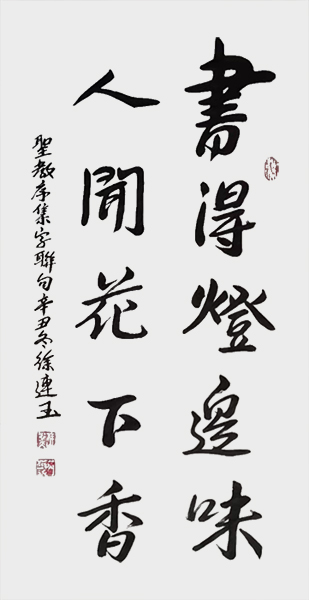 書得燈邊味
人聞花下香
聖教序集字聯句辛丑冬徐連玉